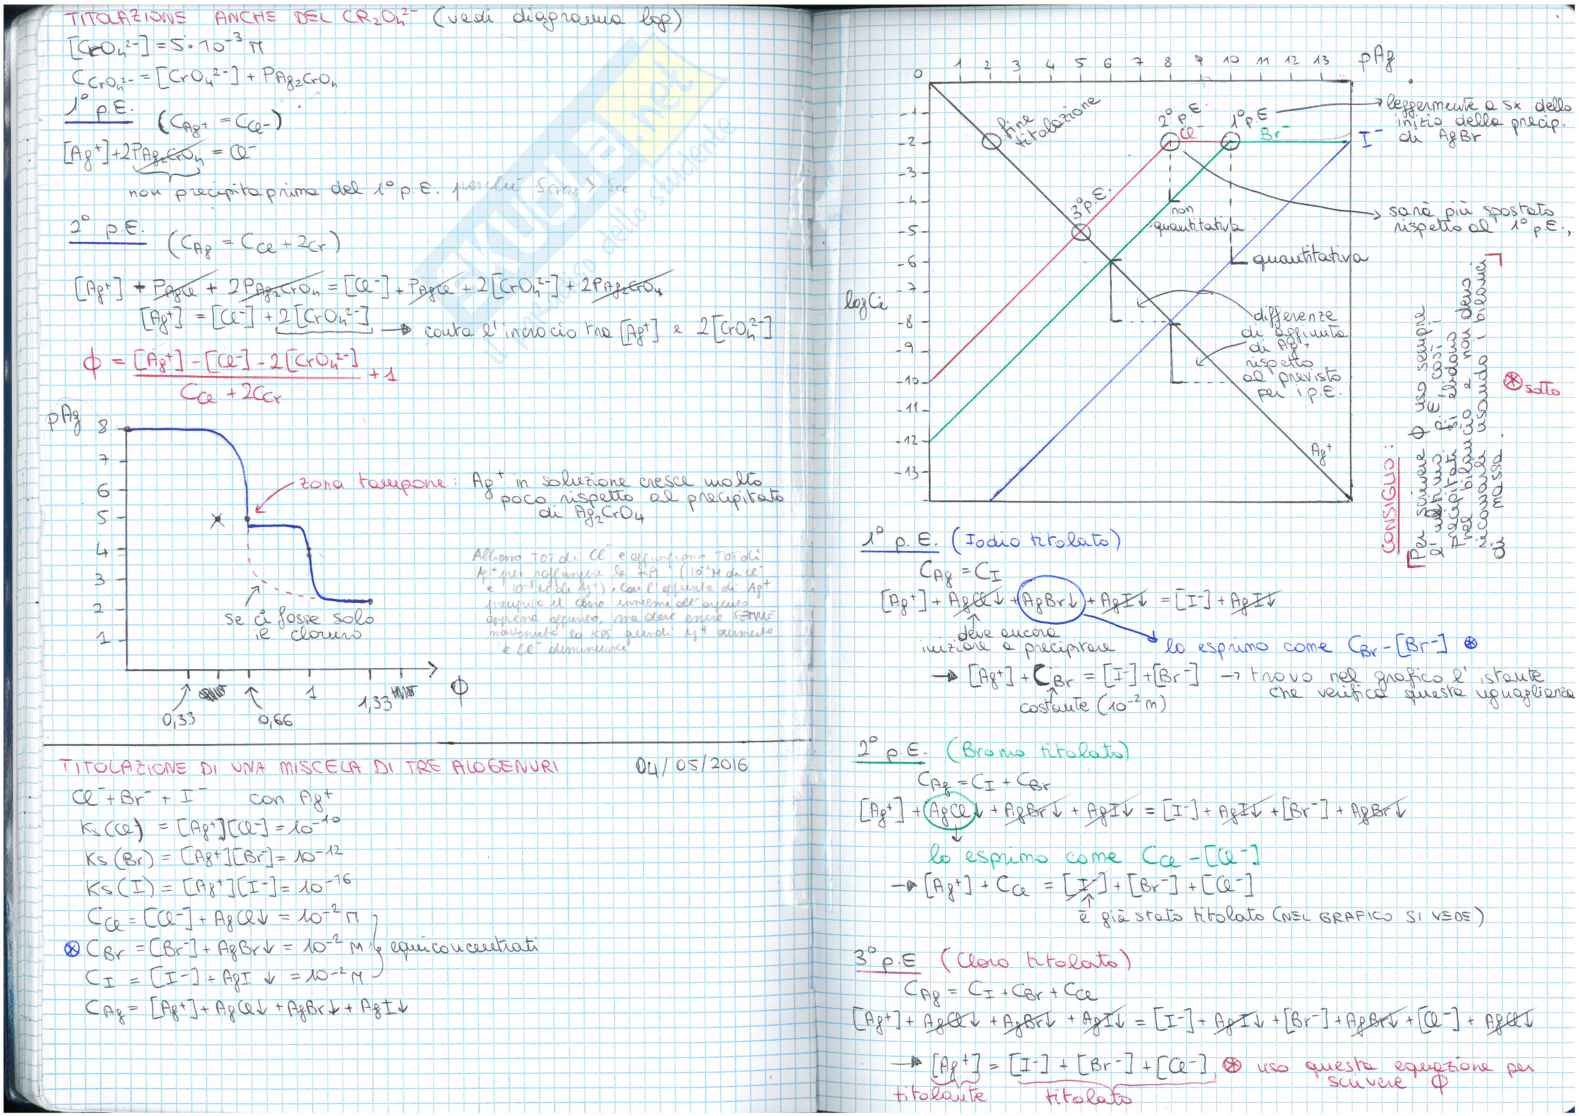 TITOLAZIONE ANCHE DEL CR₂O₄²⁻ (vedi diagramma log)
[CrO₄²⁻] = 5·10⁻³ M
C CrO₄²⁻ = [CrO₄²⁻] + PAg₂CrO₄
1° p.E. (C Ag⁺ = C Cl⁻)
[Ag⁺] + 2PAg₂CrO₄ = Cl⁻
non precipita prima del 1° p.E. perché
2° p.E. (C Ag = C Cl + 2Cr)
[Ag⁺] + PAgCl + 2PAg₂CrO₄ = [Cl⁻] + PAgCl + 2[CrO₄²⁻] + 2PAg₂CrO₄
[Ag⁺] = [Cl⁻] + 2[CrO₄²⁻] → conta l'incrocio tra [Ag⁺] e 2[CrO₄²⁻]
Φ = [Ag⁺] - [Cl⁻] - 2[CrO₄²⁻] + 1
C Cl + 2C Cr
pAg
8
7
6
5
4
3
2
1
zona tampone: Ag⁺ in soluzione cresce molto
poco rispetto al precipitato
di Ag₂CrO₄
se ci fosse solo
il cloruro
0,33
0,66
1
1,33
Φ
TITOLAZIONE DI UNA MISCELA DI TRE ALOGENURI 04/05/2016
Cl⁻ + Br⁻ + I⁻ con Ag⁺
Ks(Cl) = [Ag⁺][Cl⁻] = 10⁻¹⁰
Ks(Br) = [Ag⁺][Br⁻] = 10⁻¹²
Ks(I) = [Ag⁺][I⁻] = 10⁻¹⁶
C Cl = [Cl⁻] + AgCl↓ = 10⁻² M
⊗ C Br = [Br⁻] + AgBr↓ = 10⁻² M } equiconcentrati
C I = [I⁻] + AgI ↓ = 10⁻² M
C Ag = [Ag⁺] + AgCl↓ + AgBr↓ + AgI↓
0 1 2 3 4 5 6 7 8 9 10 11 12 13 pAg
-1
-2
-3
-4
-5
-6
-7
logCi
-8
-9
-10
-11
-12
-13
fine
titolazione
2° p.E.
Cl⁻
1° p.E
Br⁻
I⁻
leggermente a sx dello
inizio della precip.
di AgBr
3° p.E.
non
quantitativa
quantitativa
sarà più spostato
rispetto al 1° p.E.,
differenze
di affinità
di Ag⁺
rispetto
al previsto
per i p.E.
Ag⁺
CONSIGLIO:
Per scrivere Φ usa sempre
⊗ sotto
1° p.E. (Iodio titolato)
C Ag = C I
[Ag⁺] + AgCl↓ + AgBr↓ + AgI↓ = [I⁻] + AgI↓
deve ancora
iniziare a precipitare
lo esprimo come C Br - [Br⁻] ⊗
→ [Ag⁺] + C Br = [I⁻] + [Br⁻] → trovo nel grafico l'istante
che verifica questa uguaglianza
costante (10⁻² M)
2° p.E. (Bromo titolato)
C Ag = C I + C Br
[Ag⁺] + AgCl↓ + AgBr↓ + AgI↓ = [I⁻] + AgI↓ + [Br⁻] + AgBr↓
lo esprimo come C Cl - [Cl⁻]
→ [Ag⁺] + C Cl = [I⁻] + [Br⁻] + [Cl⁻]
è già stato titolato (NEL GRAFICO SI VEDE)
3° p.E (Cloro titolato)
C Ag = C I + C Br + C Cl
[Ag⁺] + AgCl↓ + AgBr↓ + AgI↓ = [I⁻] + AgI↓ + [Br⁻] + AgBr↓ + [Cl⁻] + AgCl↓
→ [Ag⁺] = [I⁻] + [Br⁻] + [Cl⁻] ⊗ uso questa equazione per
scrivere Φ
titolante titolato